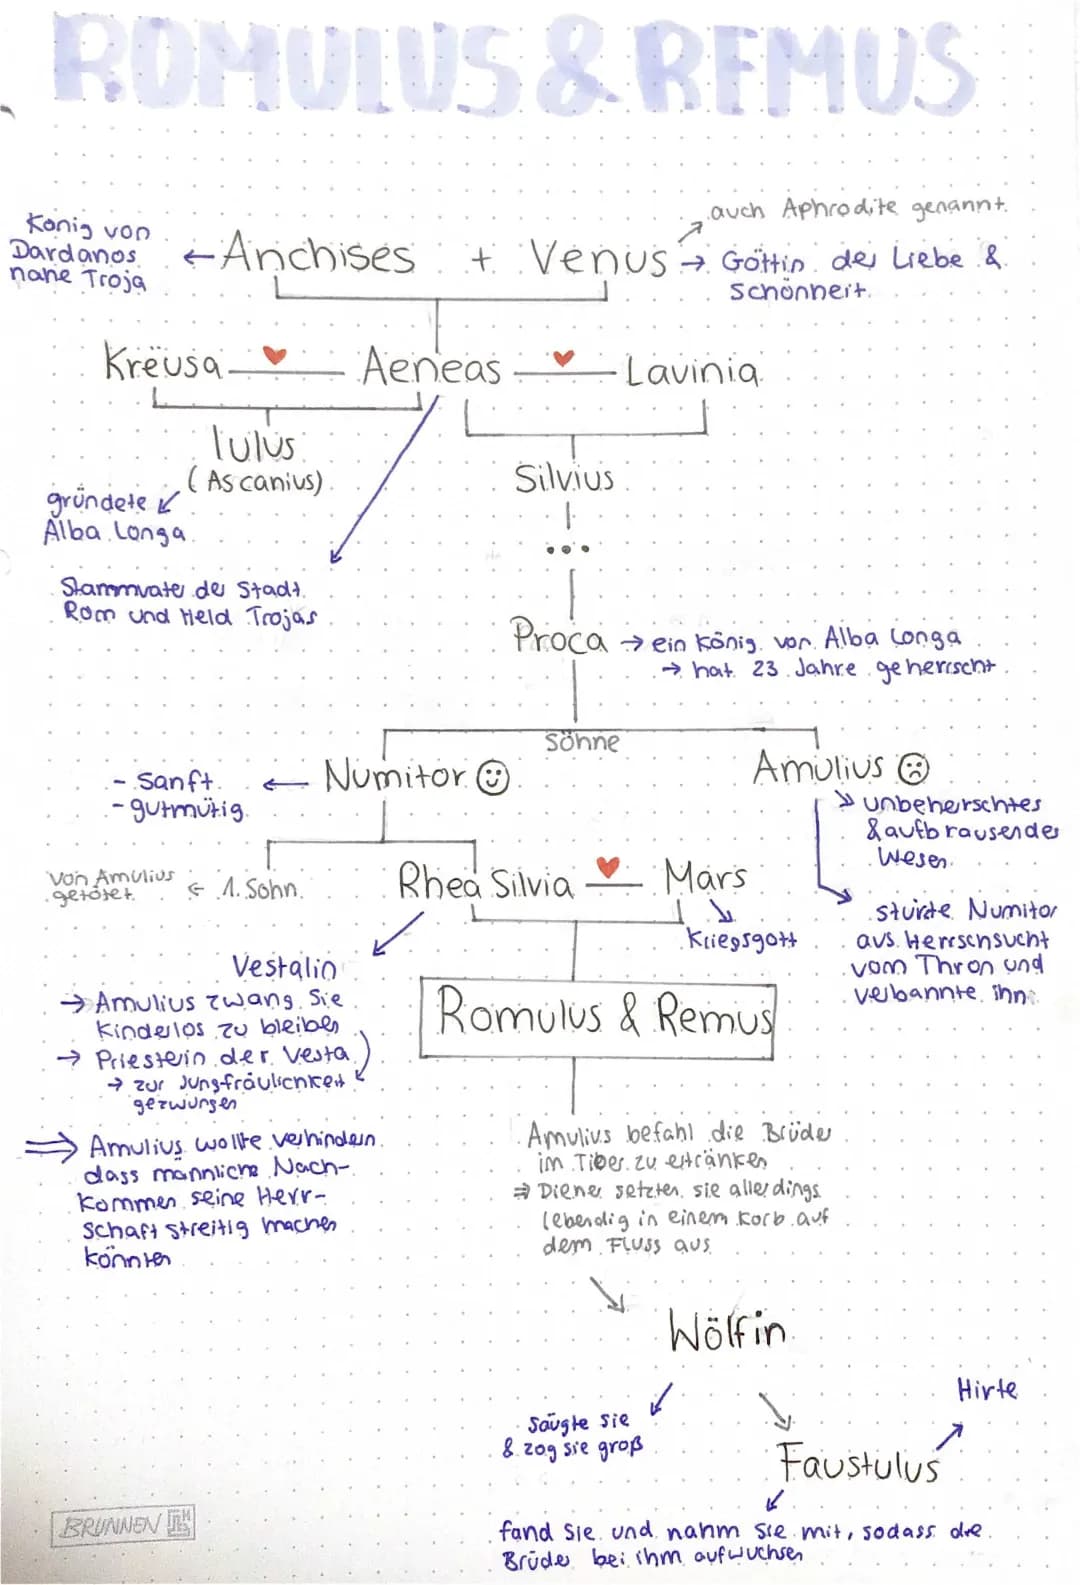 ROMULUS & REMUS
auch Aphrodite genannt
König von
Dardanos
nahe Troja
← Anchises + Venus → Göttin der Liebe &
Schönheit
Krëusa ♥ Aeneas ♥ Lavinia
Iulus
(Ascanius)
Silvius
gründete
Alba Longa
...
Stammvater der Stadt
Rom und Held Trojas
Proca → ein König von Alba Longa
→ hat 23 Jahre geherrscht
Söhne
- Sanft ← Numitor Amulius
- gutmütig
unbeherschtes
& aufbrausendes
Wesen
von Amulius
getötet ← 1. Sohn
Rhea Silvia ♥ Mars
Kriegsgott
stürzte Numitor
aus Herrschsucht
vom Thron und
verbannte ihn
Vestalin
→ Amulius zwang sie
Kinderlos zu bleiben
→ Priesterin der Vesta
→ zur Jungfräulichkeit
gezwungen
Romulus & Remus
⇒ Amulius wollte verhindern
dass männliche Nach-
kommen seine Herr-
schaft streitig machen
könnten
Amulius befahl die Brüder
im Tiber zu ertränken
⇒ Diener setzten sie allerdings
lebendig in einem Korb auf
dem Fluss aus
Wölfin
Säugte sie
& zog sie groß
Hirte
Faustulus
fand sie und nahm sie mit, sodass die
Brüder bei ihm aufwuchsen
BRUNNEN